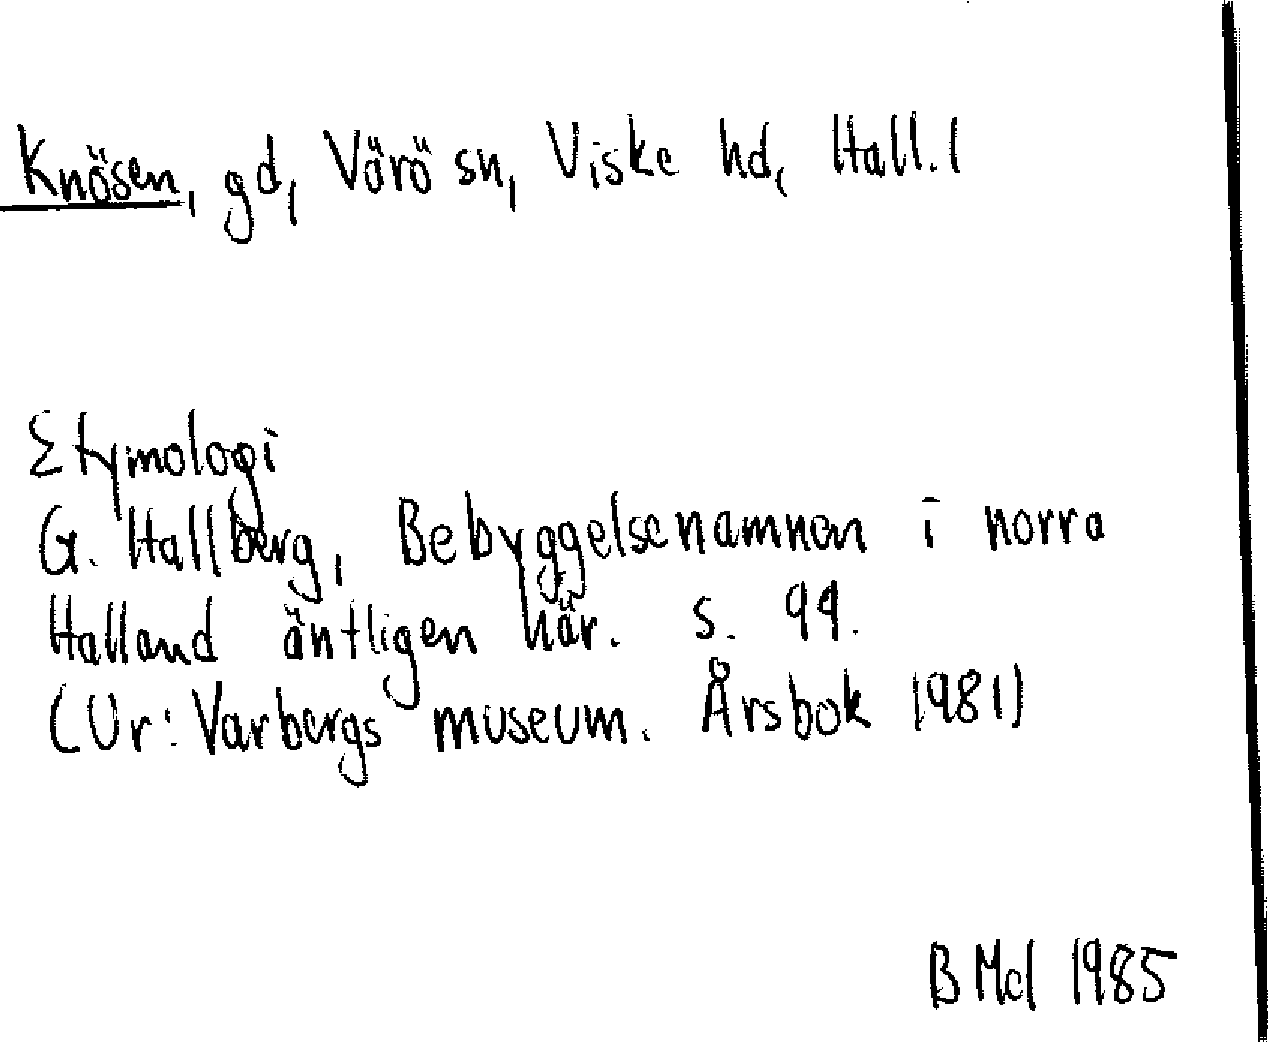 Knösen, gd, Värö sn, Viske hd, Hall. l
Etymologi
G. Hallberg, Bebyggelsenamnen i norra
Halland äntligen här. s. 99.
(Ur: Varbergs museum. Årsbok 1981)
B Mcl 1985